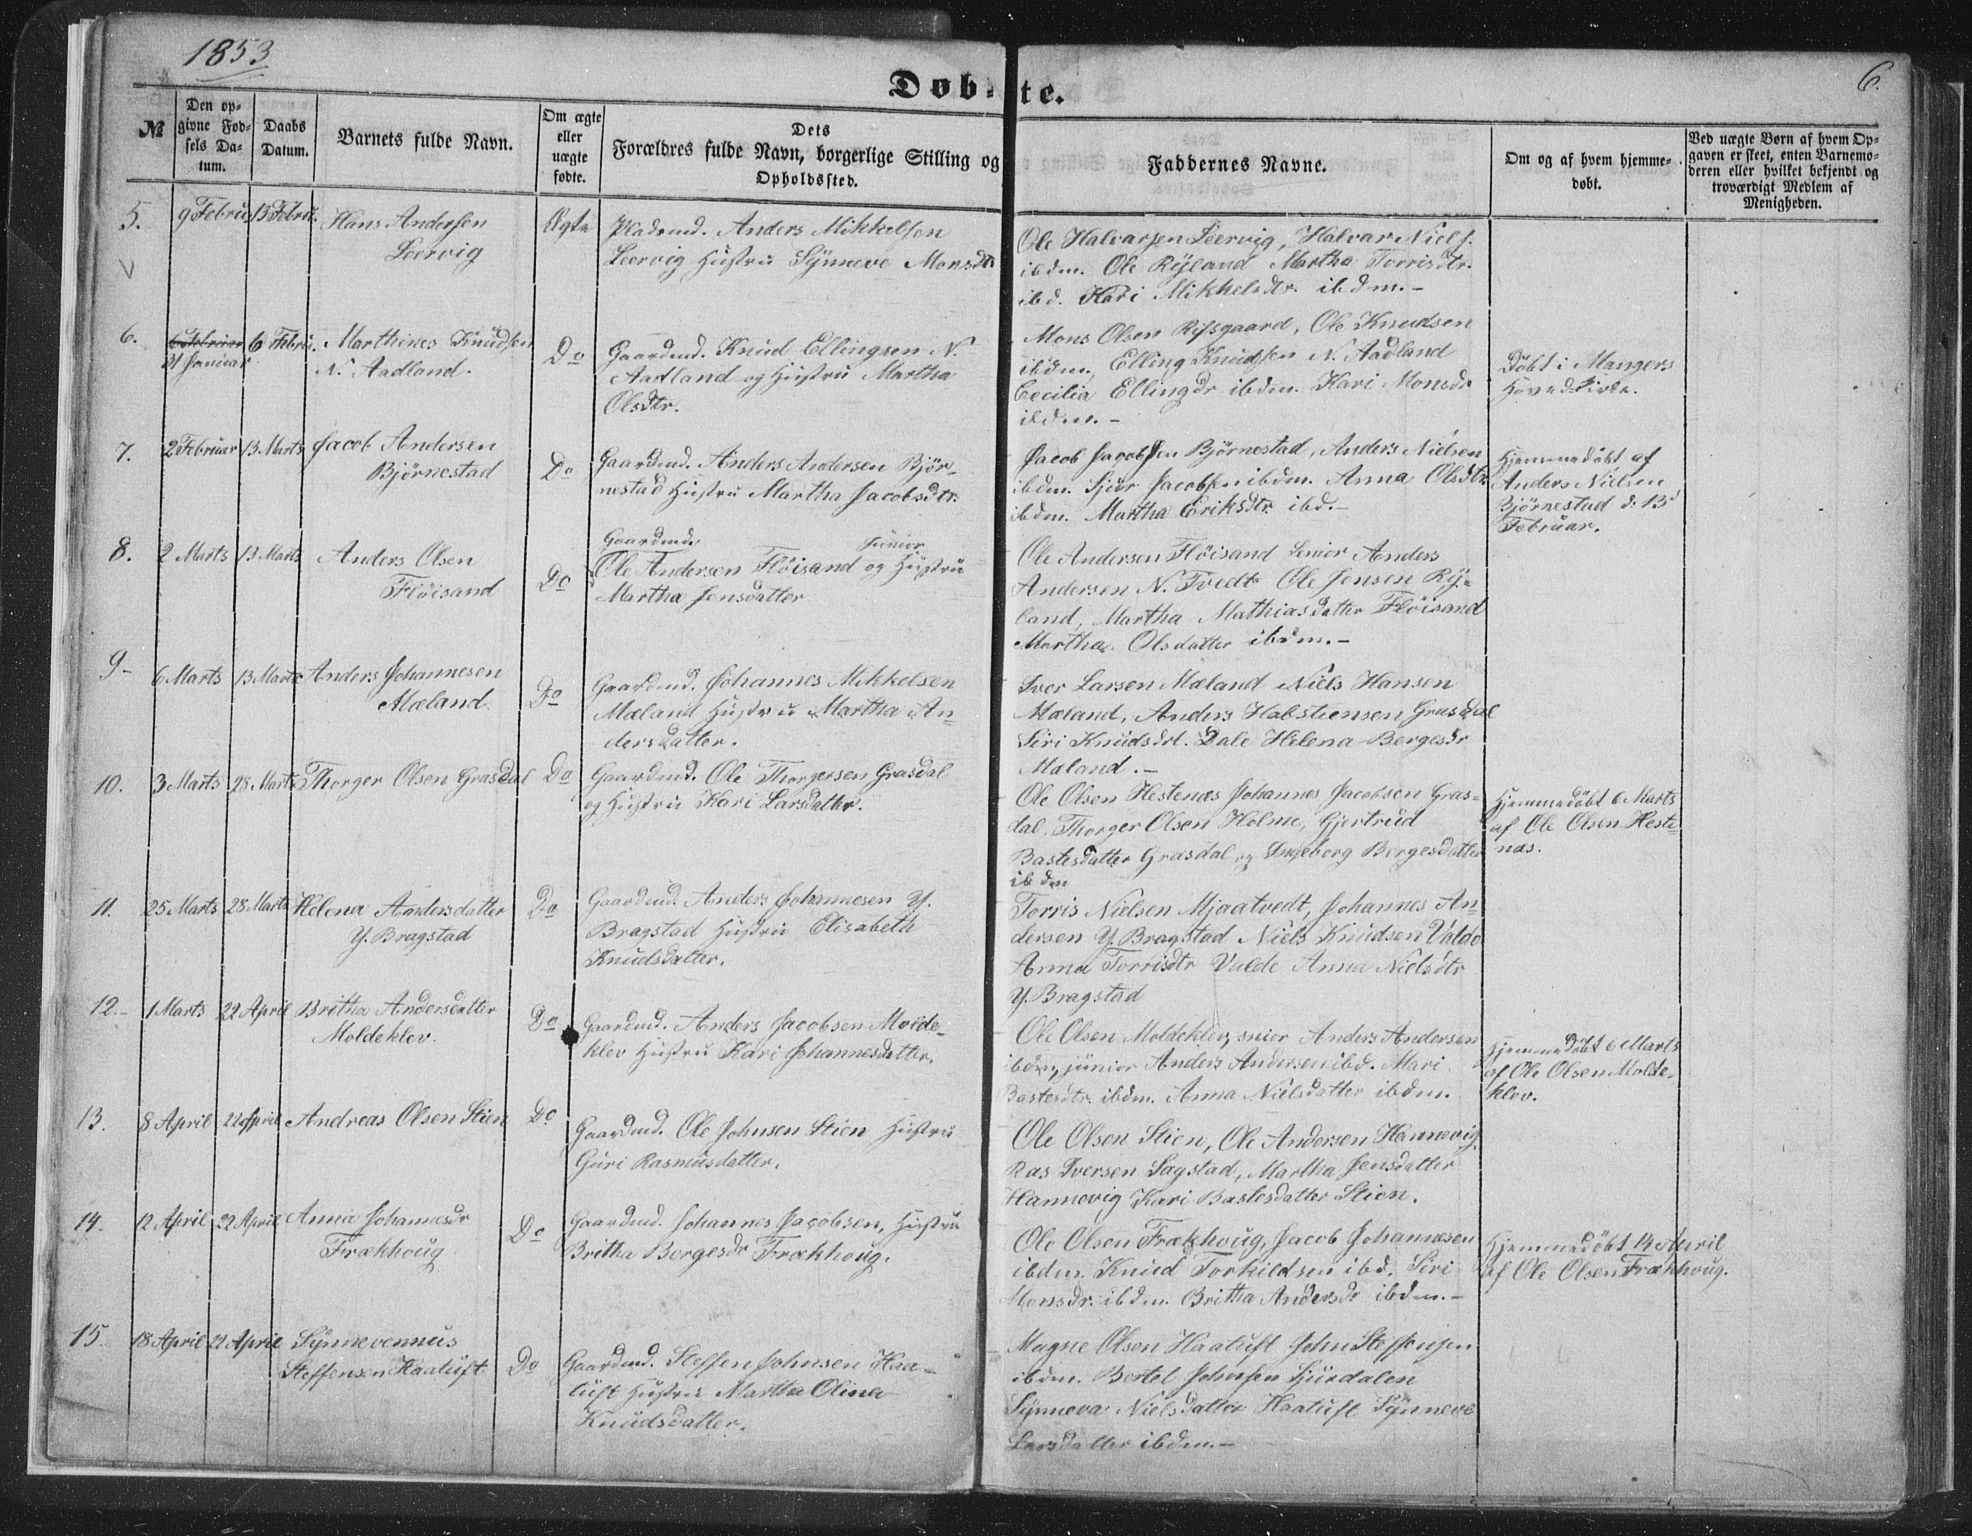 1853
6.
Døbte.
№
Den op-
givne Fød-
sels Da-
tum.
Daabs
Datum.
Barnets fulde Navn.
Om ægte
eller
uægte
fødte.
Dets
Forældres fulde Navn, borgerlige Stilling og
Opholdssted.
Faddernes Navne.
Om og af hvem hjemme-
døbt.
Ved uægte Børn af hvem Op-
gaven er skeet, enten Barnemo-
deren eller hvilket bekjendt og
troværdigt Medlem af
Menigheden.
5.
9 Februar
13 Febru.
Hans Andersen
Leervig
Ægte
Pladsmd. Anders Mikkelsen
Leervig Hustru Synneve Monsdtr
Ole Halvorsen Leervig, Halvar Niels.
ibdm. Ole Ryland Martha Torrisdtr.
ibd. Kari Mikkelsdtr. ibdm.-
6.
6 Februar
31 Januar
6 Febru.
Marthines Knudsen
N. Aadland.
Do
Gaardmd. Knud Ellingsen N.
Aadland og Hustru Martha
Olsdtr.
Mons Olsen Risgaard, Ole Knudsen
ibdm., Elling Knudsen N. Aadland
Cecilia Ellingdr ibdm. Kari Monsdr
ibdm.-
Døbt i Mangers
Hovedkirke.
7.
2 Februar
13 Marts
Jacob Andersen
Bjørnestad
Do
Gaardmd. Anders Andersen Bjør-
nestad Hustru Martha Jacobsdtr.
Jacob Jacobsen Bjørnestad, Anders Nielsen
ibdm. Sjur Jacobsen ibdm. Anna Olsdtr
ibdm. Martha Eriksdtr ibd.-
Hjemmedøbt af
Anders Nielsen
Bjørnestad d. 13
Februar.
8.
2 Marts
13 Marts
Anders Olsen
Fløisand
Do
Gaardmd. Junior
Ole Andersen Fløisand og Hustru
Martha Jensdatter
Ole Andersen Fløisand Senior Anders
Andersen N. Tvedt Ole Jensen Ry-
land, Martha Mathiasdatter Fløisand
Martha Olsdatter ibdm.-
9-
6 Marts
13 Marts
Anders Johannesen
Mæland.
Do
Gaardmd. Johannes Mikkelsen
Mæland Hustru Martha An-
dersdatter.
Iver Larsen Mæland Niels Hansen
Mæland, Anders Habsteensen Grasdal
Siri Knudsdt. Dale Helena Bergesdr
Mæland.-
10.
3 Marts
28 Marts
Thorger Olsen Grasdal
Do
Gaardmd. Ole Thorgersen Grasdal
og Hustru Kari Larsdatter.
Ole Olsen Hestenæs Johannes Jacobsen Gras-
dal, Thorger Olsen Holme, Gjertrud
Bastesdatter Grasdal og Ingeborg Bergesdatter
ibdm
Hjemmedøbt 6 Marts
af Ole Olsen Heste-
næs.
11.
25 Marts
28 Marts
Helena Andersdatter
Y. Bragstad
Do
Gaardmd. Anders Johannesen Y.
Bragstad Hustru Elisabeth
Knudsdatter.
Torris Nielsen Mjaatvedt, Johannes An-
dersen Y. Bragstad Niels Knudsen Valde
Anna Torrisdtr Valde Anna Nielsdtr
Y. Bragstad
12.-
1 Marts
22 April
Britha Andersdatter
Moldeklev.
Do
Gaardmd. Anders Jacobsen Molde-
klev Hustru Kari Johannesdatter.
Ole Olsen Moldeklev, Anders Andersen
ibdm, junior Anders Andersen ibd. Mari
Bastesdtr. ibdm. Anna Nielsdatter ibdm.
Hjemmedøbt 6 Marts
af Ole Olsen Molde-
klev.
13.
8 April
22 April
Andreas Olsen Stien
Do
Gaardmd. Ole Johnsen Stien Hustru
Guri Rasmusdatter.
Ole Olsen Stien, Ole Andersen Hannevig
Ras Iversen Sagstad, Martha Jensdatter
Hannevig Kari Bastesdatter Stien.
14.
12 April
22 April
Anna Johannesdr
Frækhoug
Do
Gaardmd. Johannes Jacobsen, Hustru
Britha Bergesdr Frækhoug.
Ole Olsen Frækhoug, Jacob Johannesen
ibdm. Knud Torkildsen ibd. Siri
Monsdr. ibdm. Britha Andersdr ibdm.-
Hjemmedøbt 14 April
af Ole Olsen Frækhoug.
15.
18 April
22 April
Synnevennus
Steffensen Haatuft
Do
Gaardmd. Steffen Johnsen Haa-
tuft Hustru Martha Olina
Knudsdatter.
Magne Olsen Haatuft John Steffensen
ibdm. Bertel Johnsen Sjurdalen
Synneva Nielsdatter Haatuft Synneve
Larsdatter ibdm.-